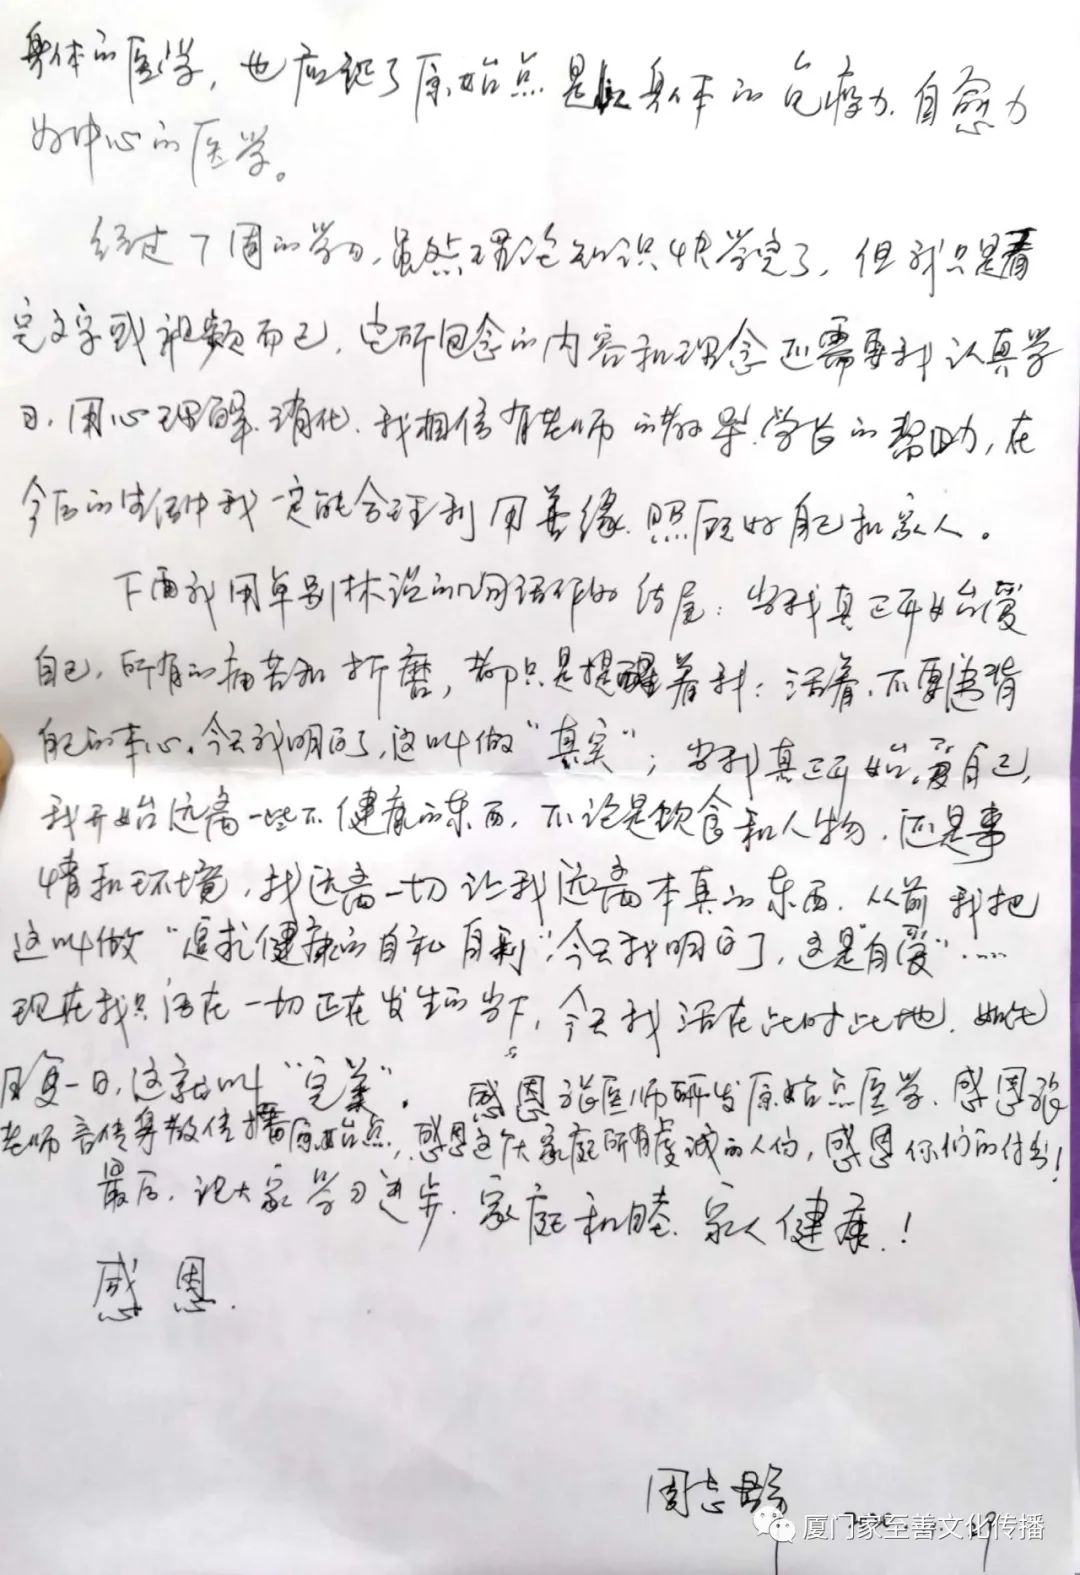 身体的医学，也应证了原始点是以身体的免疫力、自愈力
为中心的医学。
经过7周的学习，虽然理论知识快学完了，但我只是看
完文字或视频而已，它所包含的内容和理念还需要我认真学
习，用心理解、消化，我相信有老师的教导、学长的帮助，在
今后的生活中我一定能合理利用善缘，照顾好自己和家人。
下面我用卓别林说的一句话作为结尾：当我真正开始爱
自己，所有的痛苦和折磨，都只是提醒着我：活着，不要违背
自己的本心。今天我明白了，这叫做“真实”；当我真正开始爱自己，
我开始远离一些不健康的东西，不论是饮食和人物，还是事
情和环境，我远离一切让我远离本真的东西，从前我把
这叫做“追求健康的自私自利”，今天我明白了，这是“自爱”……
现在我只活在一切正在发生的当下，今天我活在此时此地，如此
日复一日，这就叫“完美”。 感恩张医师研发原始点医学，感恩张
老师言传身教传播原始点，感恩这个大家庭所有虔诚的人们，感恩你们的付出！
最后，祝大家学习进步，家庭和睦，家人健康！
感恩.
周志
厦门家至善文化传播